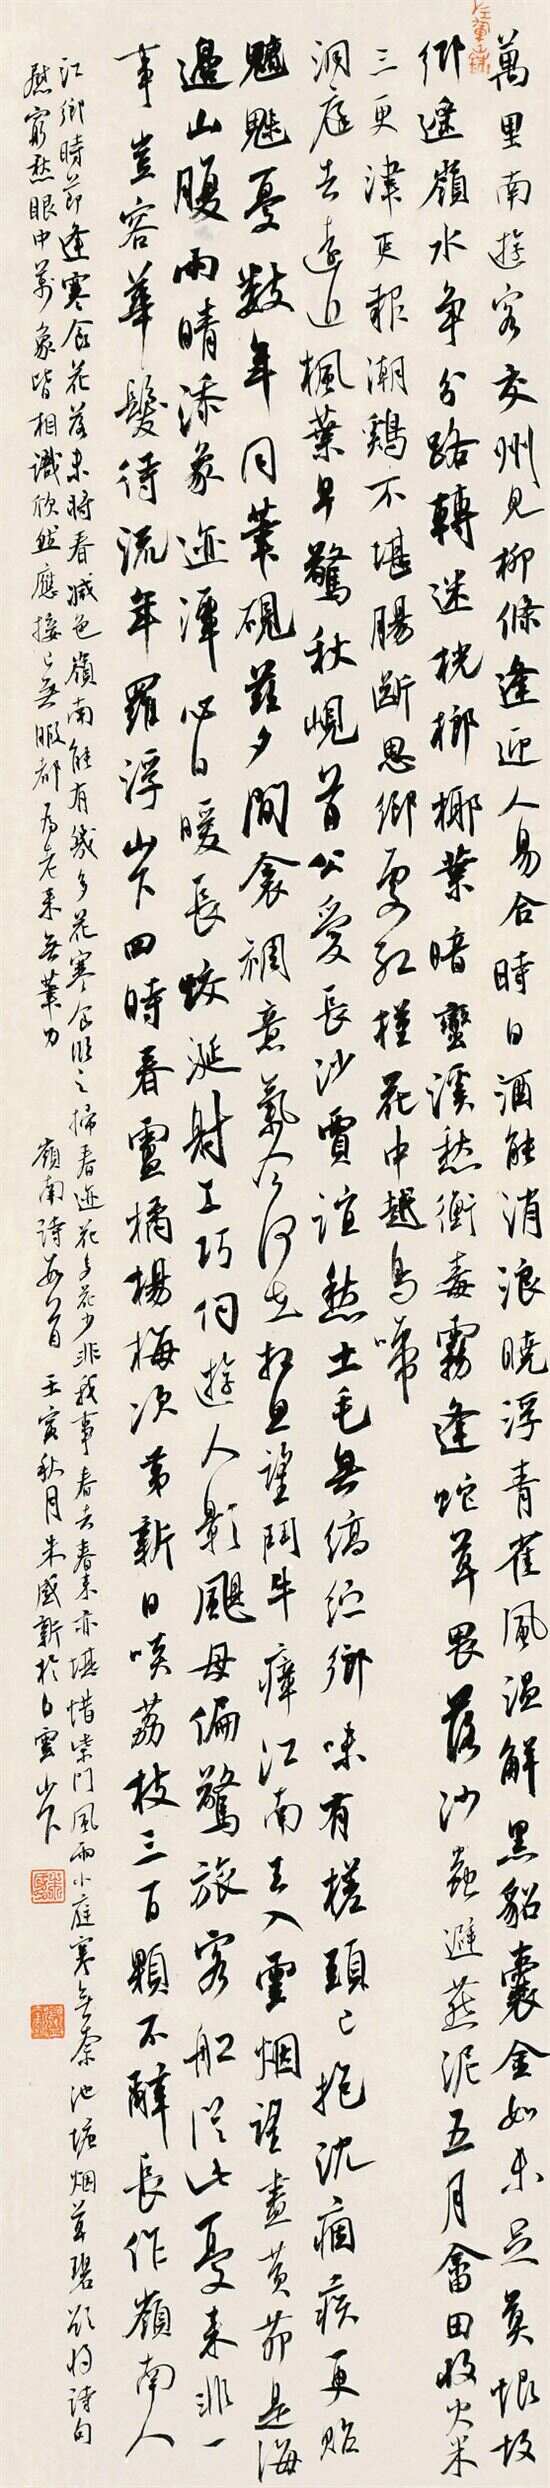 萬里南遊客交州見柳條逢迎人易合時日酒能消浪曉浮青雀風溫解黑貂囊金如未足莫恨故
鄉遙嶺水爭分路轉迷桄榔椰葉暗蠻溪愁衝毒霧逢蛇草畏落沙蟲避燕泥五月畬田收火米
三更津吏報潮鷄不堪腸斷思鄉處紅槿花中越鳥啼
洞庭去遠近楓葉早驚秋峴首公愛長沙賈誼愁土毛無縞紵鄉味有槎頭已抱沈痼疾更貽
魑魅憂數年同筆硯茲夕間衾裯意氣今何在相思望鬥牛瘴江南去入雲烟望盡黃茆是海
邊山腹雨晴添象迹潭心日暖長蛟涎射工巧伺遊人影颶母偏驚旅客船從此憂來非一
事豈容華髮待流年羅浮山下四時春盧橘楊梅次第新日啖荔枝三百顆不辭長作嶺南人
江鄉時節逢寒食花落未將春減色嶺南能有幾多花寒食臨之掃春迹花多花少非我事春去春來亦堪惜柴門風雨小庭寒無奈池塘烟草碧欲將詩句
慰窮愁眼中萬象皆相識欣然應接已無暇都爲老來無筆力 嶺南詩數首 壬寅秋月朱盛新於白雲山下